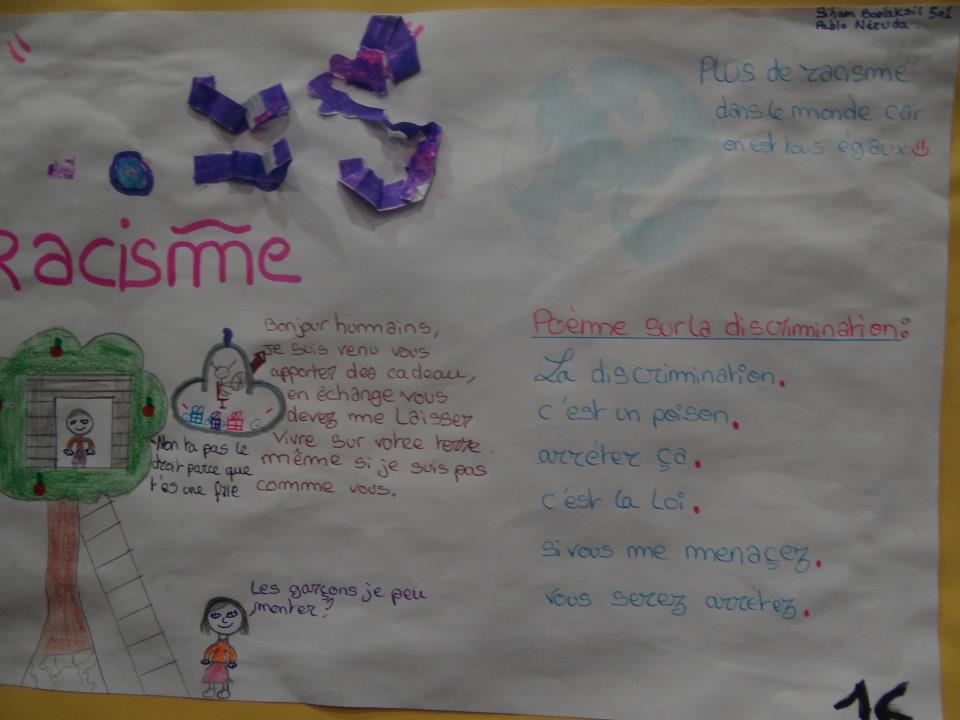 Siham Boolaksil 501
Pablo Néruda
Plus de racisme
dans le monde car
on est tous égaux
Racisme
Bonjour humains,
je suis venu vous
apporter des cadeau,
en échange vous
devez me laisser
vivre sur votre terre.
même si je suis pas
comme vous.
Non ta pas le
droit parce que
t'es une fille
Les garçons je peu
monter?
Poème sur la discrimination:
La discrimination.
c'est un poison.
arréter ça.
c'est la loi.
si vous me menaçez.
vous serez arretez.
16